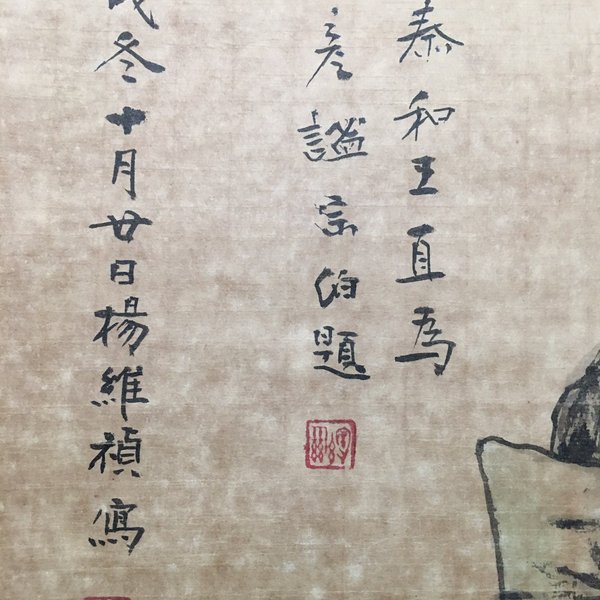 泰和王直為
彦謐宗伯題
冬十月廿日楊維禎寫